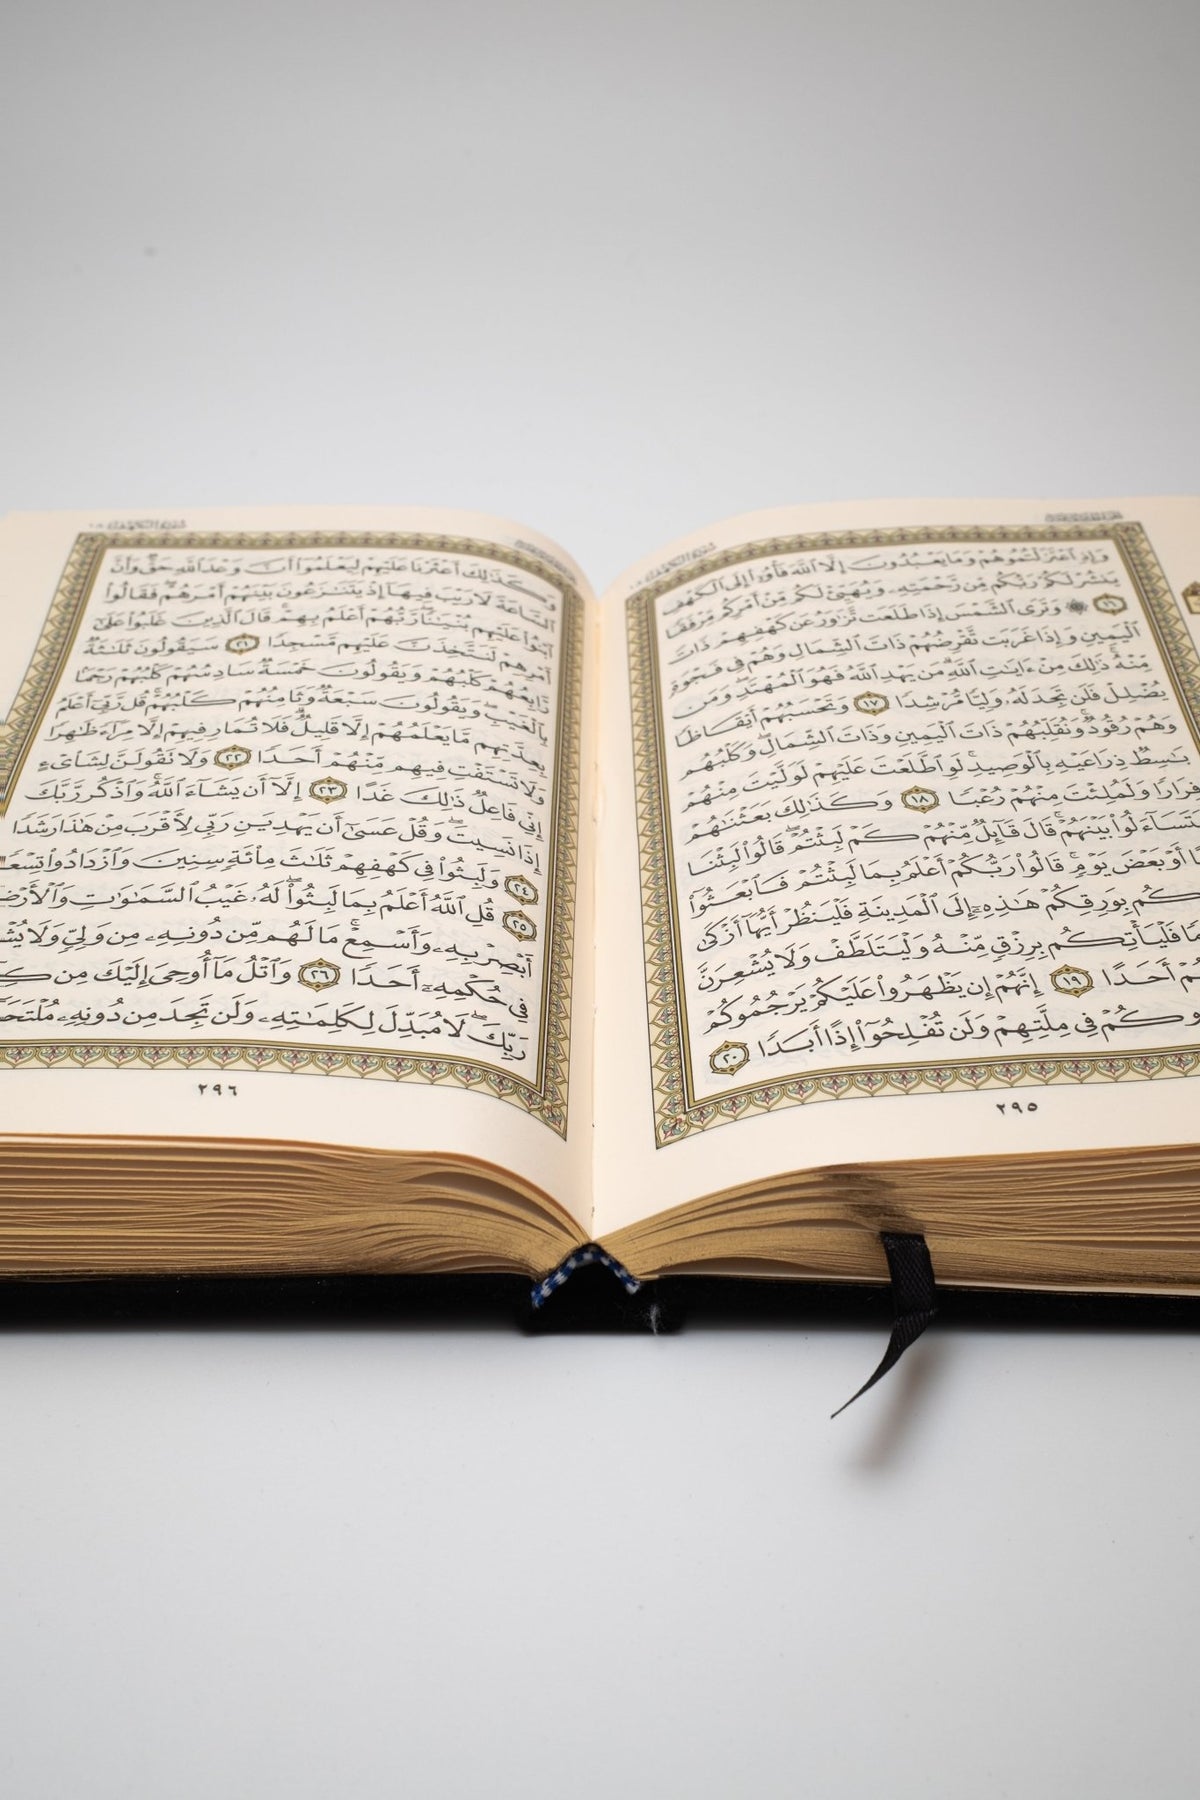 وَإِذِ ٱعْتَزَلْتُمُوهُمْ وَمَا يَعْبُدُونَ إِلَّا ٱللَّهَ فَأْوُۥٓا۟ إِلَى ٱلْكَهْفِ
يَنشُرْ لَكُمْ رَبُّكُم مِّن رَّحْمَتِهِۦ وَيُهَيِّئْ لَكُم مِّنْ أَمْرِكُم مِّرْفَقًا
١٦ ۞ وَتَرَى ٱلشَّمْسَ إِذَا طَلَعَت تَّزَٰوَرُ عَن كَهْفِهِمْ ذَاتَ
ٱلْيَمِينِ وَإِذَا غَرَبَت تَّقْرِضُهُمْ ذَاتَ ٱلشِّمَالِ وَهُمْ فِى فَجْوَةٍ
مِّنْهُ ۚ ذَٰلِكَ مِنْ ءَايَٰتِ ٱللَّهِ ۗ مَن يَهْدِ ٱللَّهُ فَهُوَ ٱلْمُهْتَدِ ۖ وَمَن
يُضْلِلْ فَلَن تَجِدَ لَهُۥ وَلِيًّا مُّرْشِدًا ١٧ وَتَحْسَبُهُمْ أَيْقَاظًا
وَهُمْ رُقُودٌ ۚ وَنُقَلِّبُهُمْ ذَاتَ ٱلْيَمِينِ وَذَاتَ ٱلشِّمَالِ ۖ وَكَلْبُهُم
بَٰسِطٌ ذِرَاعَيْهِ بِٱلْوَصِيدِ ۚ لَوِ ٱطَّلَعْتَ عَلَيْهِمْ لَوَلَّيْتَ مِنْهُمْ
فِرَارًا وَلَمُلِئْتَ مِنْهُمْ رُعْبًا ١٨ وَكَذَٰلِكَ بَعَثْنَٰهُمْ
تَسَآءَلُوا۟ بَيْنَهُمْ ۚ قَالَ قَآئِلٌ مِّنْهُمْ كَمْ لَبِثْتُمْ ۖ قَالُوا۟ لَبِثْنَا
أَوْ بَعْضَ يَوْمٍ ۚ قَالُوا۟ رَبُّكُمْ أَعْلَمُ بِمَا لَبِثْتُمْ فَٱبْعَثُوٓا۟
كُم بِوَرِقِكُمْ هَٰذِهِۦٓ إِلَى ٱلْمَدِينَةِ فَلْيَنظُرْ أَيُّهَآ أَزْكَىٰ
مًا فَلْيَأْتِكُم بِرِزْقٍ مِّنْهُ وَلْيَتَلَطَّفْ وَلَا يُشْعِرَنَّ
كُمْ أَحَدًا ١٩ إِنَّهُمْ إِن يَظْهَرُوا۟ عَلَيْكُمْ يَرْجُمُوكُمْ
وكُمْ فِى مِلَّتِهِمْ وَلَن تُفْلِحُوٓا۟ إِذًا أَبَدًا ٢٠
٢٩٥
وَكَذَٰلِكَ أَعْثَرْنَا عَلَيْهِمْ لِيَعْلَمُوٓا۟ أَنَّ وَعْدَ ٱللَّهِ حَقٌّ وَأَنَّ
ٱلسَّاعَةَ لَا رَيْبَ فِيهَآ إِذْ يَتَنَٰزَعُونَ بَيْنَهُمْ أَمْرَهُمْ ۖ فَقَالُوا۟
ٱبْنُوا۟ عَلَيْهِم بُنْيَٰنًا ۖ رَّبُّهُمْ أَعْلَمُ بِهِمْ ۚ قَالَ ٱلَّذِينَ غَلَبُوا۟ عَلَىٰٓ
أَمْرِهِمْ لَنَتَّخِذَنَّ عَلَيْهِم مَّسْجِدًا ٢١ سَيَقُولُونَ ثَلَٰثَةٌ
رَّابِعُهُمْ كَلْبُهُمْ وَيَقُولُونَ خَمْسَةٌ سَادِسُهُمْ كَلْبُهُمْ رَجْمًۢا
بِٱلْغَيْبِ ۖ وَيَقُولُونَ سَبْعَةٌ وَثَامِنُهُمْ كَلْبُهُمْ ۚ قُل رَّبِّىٓ أَعْلَمُ
بِعِدَّتِهِم مَّا يَعْلَمُهُمْ إِلَّا قَلِيلٌ ۗ فَلَا تُمَارِ فِيهِمْ إِلَّا مِرَآءً ظَٰهِرًا
وَلَا تَسْتَفْتِ فِيهِم مِّنْهُمْ أَحَدًا ٢٢ وَلَا تَقُولَنَّ لِشَا۟ىْءٍ
إِنِّى فَاعِلٌ ذَٰلِكَ غَدًا ٢٣ إِلَّآ أَن يَشَآءَ ٱللَّهُ ۚ وَٱذْكُر رَّبَّكَ
إِذَا نَسِيتَ وَقُلْ عَسَىٰٓ أَن يَهْدِيَنِ رَبِّى لِأَقْرَبَ مِنْ هَٰذَا رَشَدًا
٢٤ وَلَبِثُوا۟ فِى كَهْفِهِمْ ثَلَٰثَ مِا۟ئَةٍ سِنِينَ وَٱزْدَادُوا۟ تِسْعًا
٢٥ قُلِ ٱللَّهُ أَعْلَمُ بِمَا لَبِثُوا۟ ۖ لَهُۥ غَيْبُ ٱلسَّمَٰوَٰتِ وَٱلْأَرْضِ
أَبْصِرْ بِهِۦ وَأَسْمِعْ ۚ مَا لَهُم مِّن دُونِهِۦ مِن وَلِىٍّ وَلَا يُشْ
فِى حُكْمِهِۦٓ أَحَدًا ٢٦ وَٱتْلُ مَآ أُوحِىَ إِلَيْكَ مِن كِ
رَبِّكَ ۖ لَا مُبَدِّلَ لِكَلِمَٰتِهِۦ وَلَن تَجِدَ مِن دُونِهِۦ مُلْتَحَ
٢٩٦